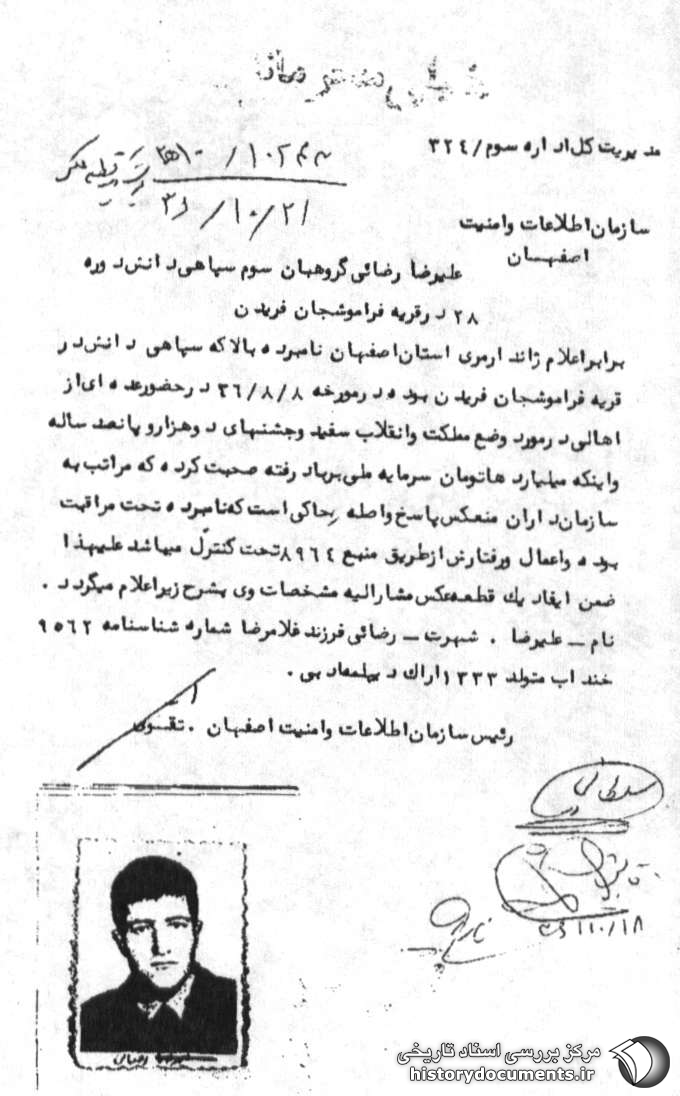 مدیریت کل اداره سوم / ۳۲٤
سازمان اطلاعات و امنیت
اصفهان
علیرضا رضائی گروهبان سوم سپاهی دانش دوره
۲۸ در قریه فراموشجان فریدن
برابر اعلام ژاندارمری استان اصفهان نامبرده بالا که سپاهی دانش در
قریه فراموشجان فریدن بوده در مورخه ۳٦/۸/۸ در حضور عده ای از
اهالی در مورد وضع مملکت و انقلاب سفید و جشنهای دوهزار و پانصد ساله
و اینکه میلیاردها تومان سرمایه ملی برباد رفته صحبت کرده که مراتب به
سازمان داران منعکس پاسخ واصله حاکی است که نامبرده تحت مراقبت
بوده و اعمال و رفتارش از طریق منبع ۸۹٦٤ تحت کنترل میباشد علیهذا
ضمن ایفاد یک قطعه عکس مشارالیه مشخصات وی بشرح زیر اعلام میگردد .
نام – علیرضا . شهرت – رضائی فرزند غلامرضا شماره شناسنامه ۹٥٦۲
خنداب متولد ۱۳۳۳ اراک
رئیس سازمان اطلاعات و امنیت اصفهان . تقوی
۱۰/۱۸
مرکز بررسی اسناد تاریخی
historydocuments.ir